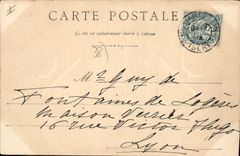 CARTE POSTALE
Ce côté est exclusivement réservé à l'adresse
Guy de
Fontaines de Logères
maison Versès
16 rue Victor Hugo
Lyon